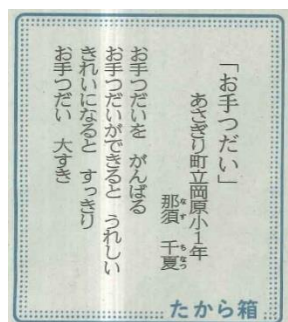 「お手つだい」
あさぎり町立岡原小1年
那須　千夏
なす　ちなつ
お手つだいを　がんばる
お手つだいができると　うれしい
きれいになると　すっきり
お手つだい　大すき
たから箱